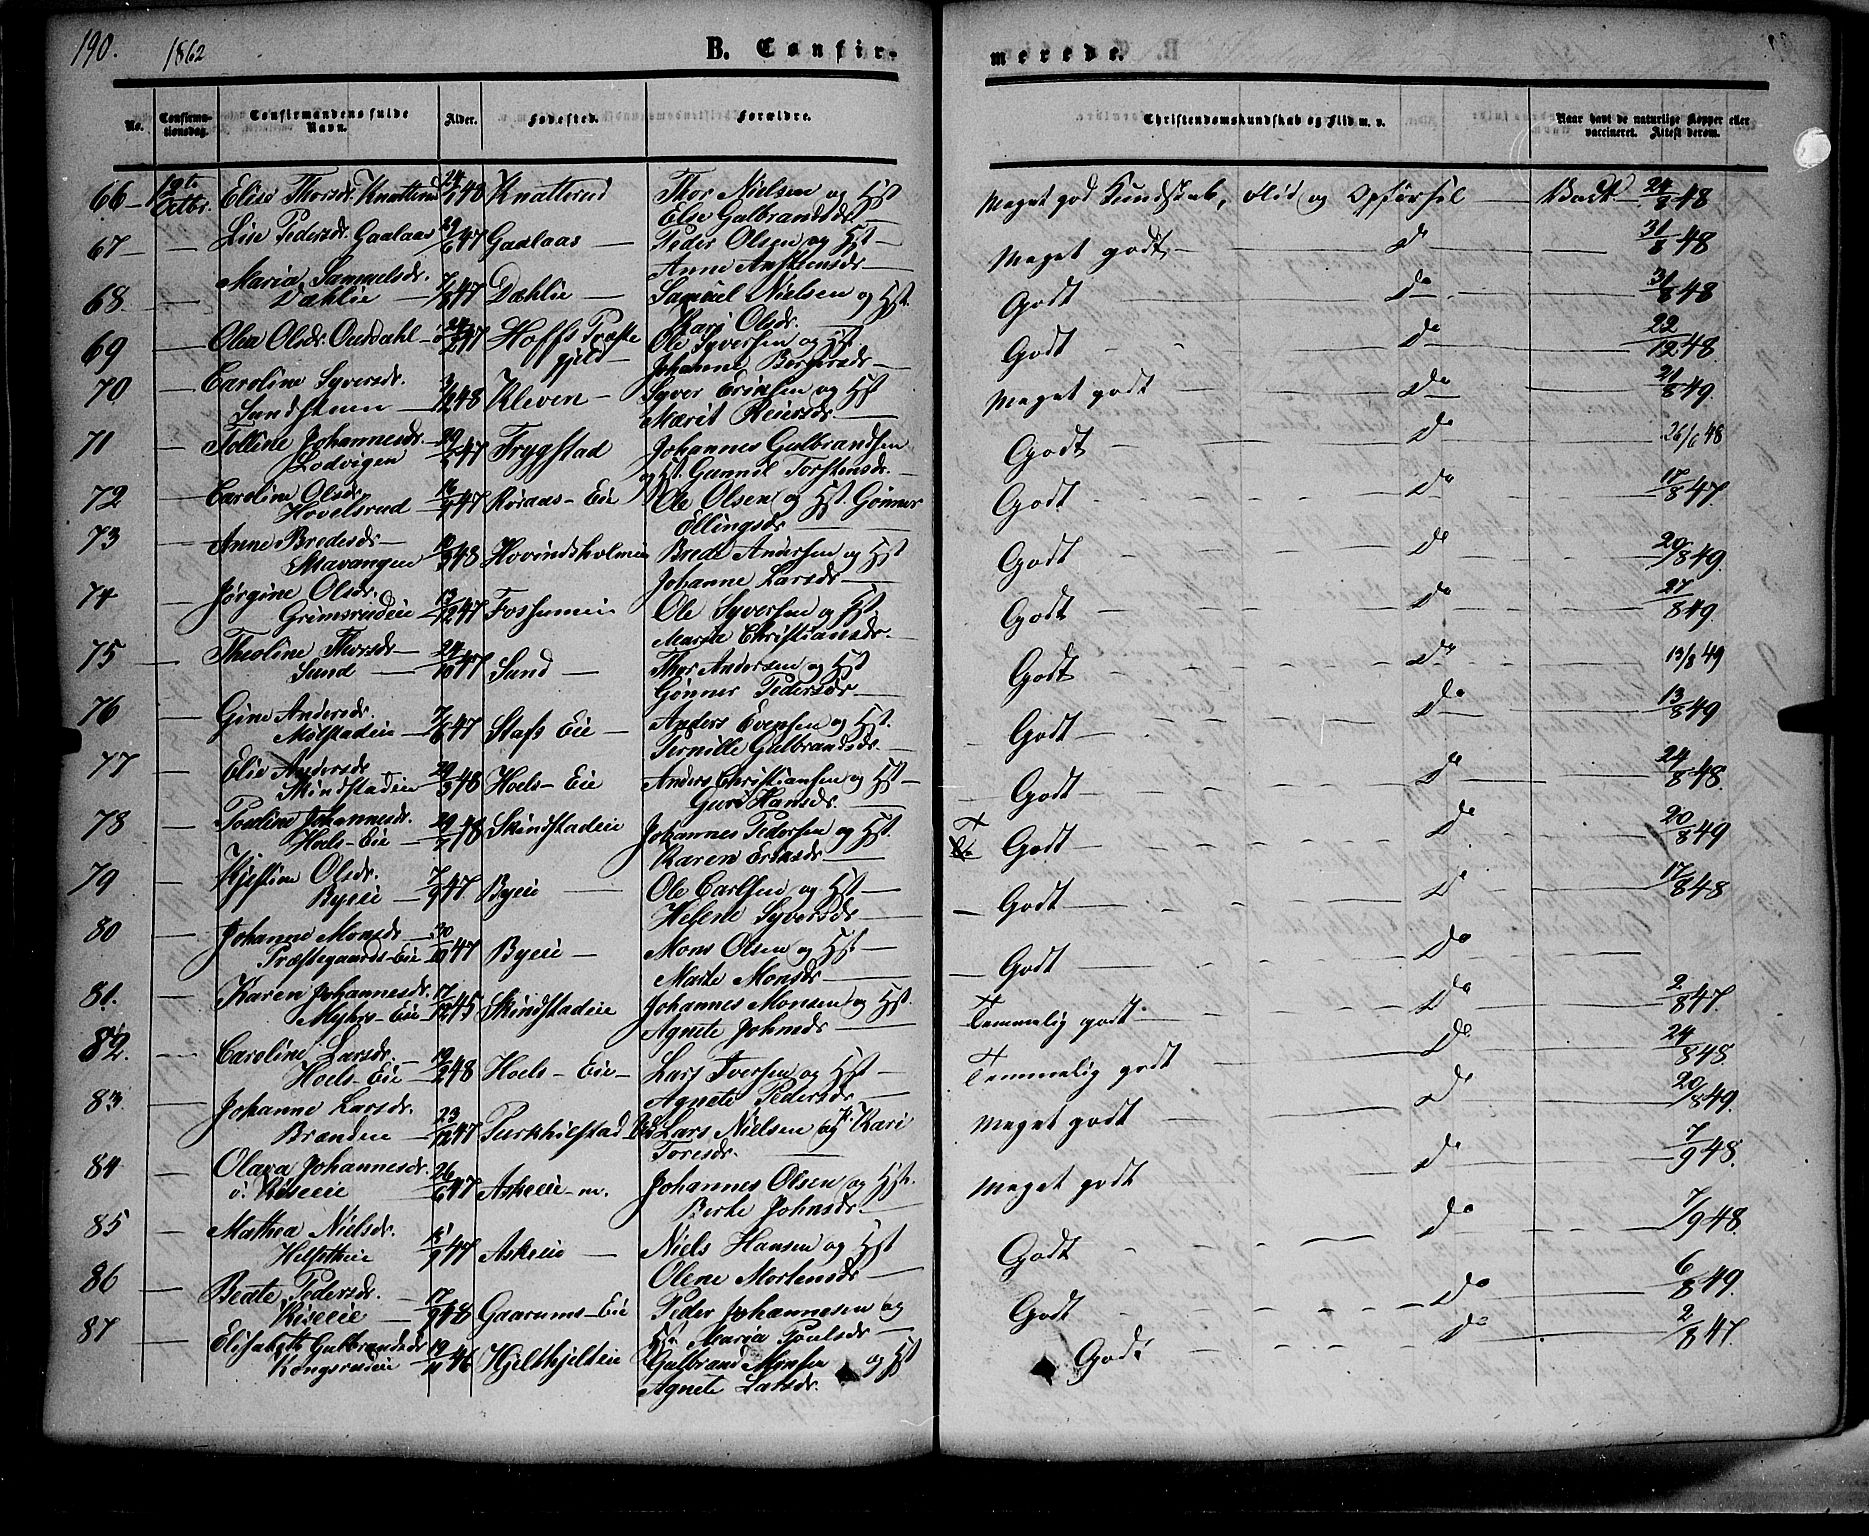 190. 1862 B. Confirmerede.
No. Confirmationsdag. Confirmandens fulde Navn. Alder. Fødested. Forældre. Christendomskundskab og Flid m. v. Naar havt de naturlige Kopper eller vaccineret. Attest derom.
66 12te Octbr. Elise Thorsdr. Knatterud 24/1 48 Knatterud Thor Nielsen og Hst Else Gulbrandsdr. Meget god Kundskab, Flid og Opførsel Vacc. 24/8 48
67 — Lise Pedersdr. Gaalaas 29/6 47 Gaalaas — Peder Olsen og Hst — Anne Amstensdr — Meget godt — Do 31/8 48
68. — Maria Samuelsdr. Dæhlie — 7/8 47 Dæhlie — Samuel Nielsen og Hst. Kari Olsdr. Godt Do 31/8 48
69 — Olea Olsdr. 47 Hoffs Præstegjeld Ole Syversen og Hst Johanne Bergersdr — Godt Do 22/12 48
70 — Caroline Syversdr. Sundstuen — 48 Kleven — Syver Eriksen og Hst Marit Reiersdr. — Meget godt Do 21/8 49.
71 — Tolline Johannesdr. Lodvigen 47 Frygstad Johannes Gulbrandsen og Hst. Gunnil Torstensdr. — Godt Do 26/6 48
72 — Caroline Olsdr. Hovelsrud 16/9 47 Røraas-Eie Ole Olsen og Hst. Gønner Ellingsdr — Godt Do 17/8 47.
73 — Anne Bredesdr — 48 Hovindsholmen Brede Andersen og Hst Johanne Larsdr — Godt Do 20/8 49.
74 — Jørgine Olsdr. Grimsrudeie 13/12 47 Fossumeie Ole Syversen og Hst. Marthe Christiansdr. — Godt Do 27/8 49.
75 — Theoline Thorsdr — Sund — 24/10 47 Sund — Thor Andersen og Hst Gønner Pedersdr. — Godt Do 13/8 49
76 — Gine Andersdr. Mælstadeie — 7/6 47 Stafs Eie — Anders Evensen og Hst. Pernille Gulbrandsdr. — Godt — Do 13/8 49
77 — Elie Andersdr Skindstadeie 20/3 48 Hoels-Eie Anders Christiansen og Hst — Guri Hansdr. — Godt — Do 24/8 48.
78 — Pouline Johannesdr. Hoels-Eie — 48 Skindstadeie Johannes Pedersen og Hst. Karen Eriksdr — T Godt — Do 20/8 49
79 — Kjestine Olsdr. Byeie — 7/9 47. Byeie — Ole Carlsen og Hst — Helene Syversdr — Godt — Do 17/8 48
80 — Johanne Monsdr — Præstegaards-Eie 30/10 47 Byeie — Mons Olsen og Hst — Marte Monsdr — Godt — Do
81. — Karen Johannesdr. Myhrs-Eie — 17/12 45 Skindstadeie Johannes Monsen og Hst. Agnete Johnsdr — Temmelig godt — Do 2/8 47.
82. — Caroline Larsdr. — Hoels-Eie — 19/2 48 Hoels-Eie — Lars Iversen og Hst — Agnete Pedersdr — Temmelig godt — Do 24/8 48.
83. — Johanne Larsdr. Brændeie — 23/12 47 Purkhulstad Lars Nielsen og P. Kari Toresdr. — Meget godt — Do 20/8 49.
84 — Olava Johannesdr. ø. Riseeie 26/6 47 Askeeie — Johannes Olsen og Hst. Berte Johnsdr. — Meget godt Do 7/9 48.
85 — Mathea Nielsdr. Helsetheie 15/9 47 Askeeie — Niels Hansen og Hst Olene Mortensdr — Godt Do 7/9 48.
86 — Beate Pedersdr. — Riseeie — 17/9 48 Gaarums-Eie Peder Johannesen og Hst. Maria Poulsdr — Godt Do 6/8 49.
87 — Elisabeth Gulbrandsdr Kongsrudeie 19/11 46 Hjelthjelteie Gulbrand Monsen og Hst Agnete Larsdr. Godt Do 2/8 47.